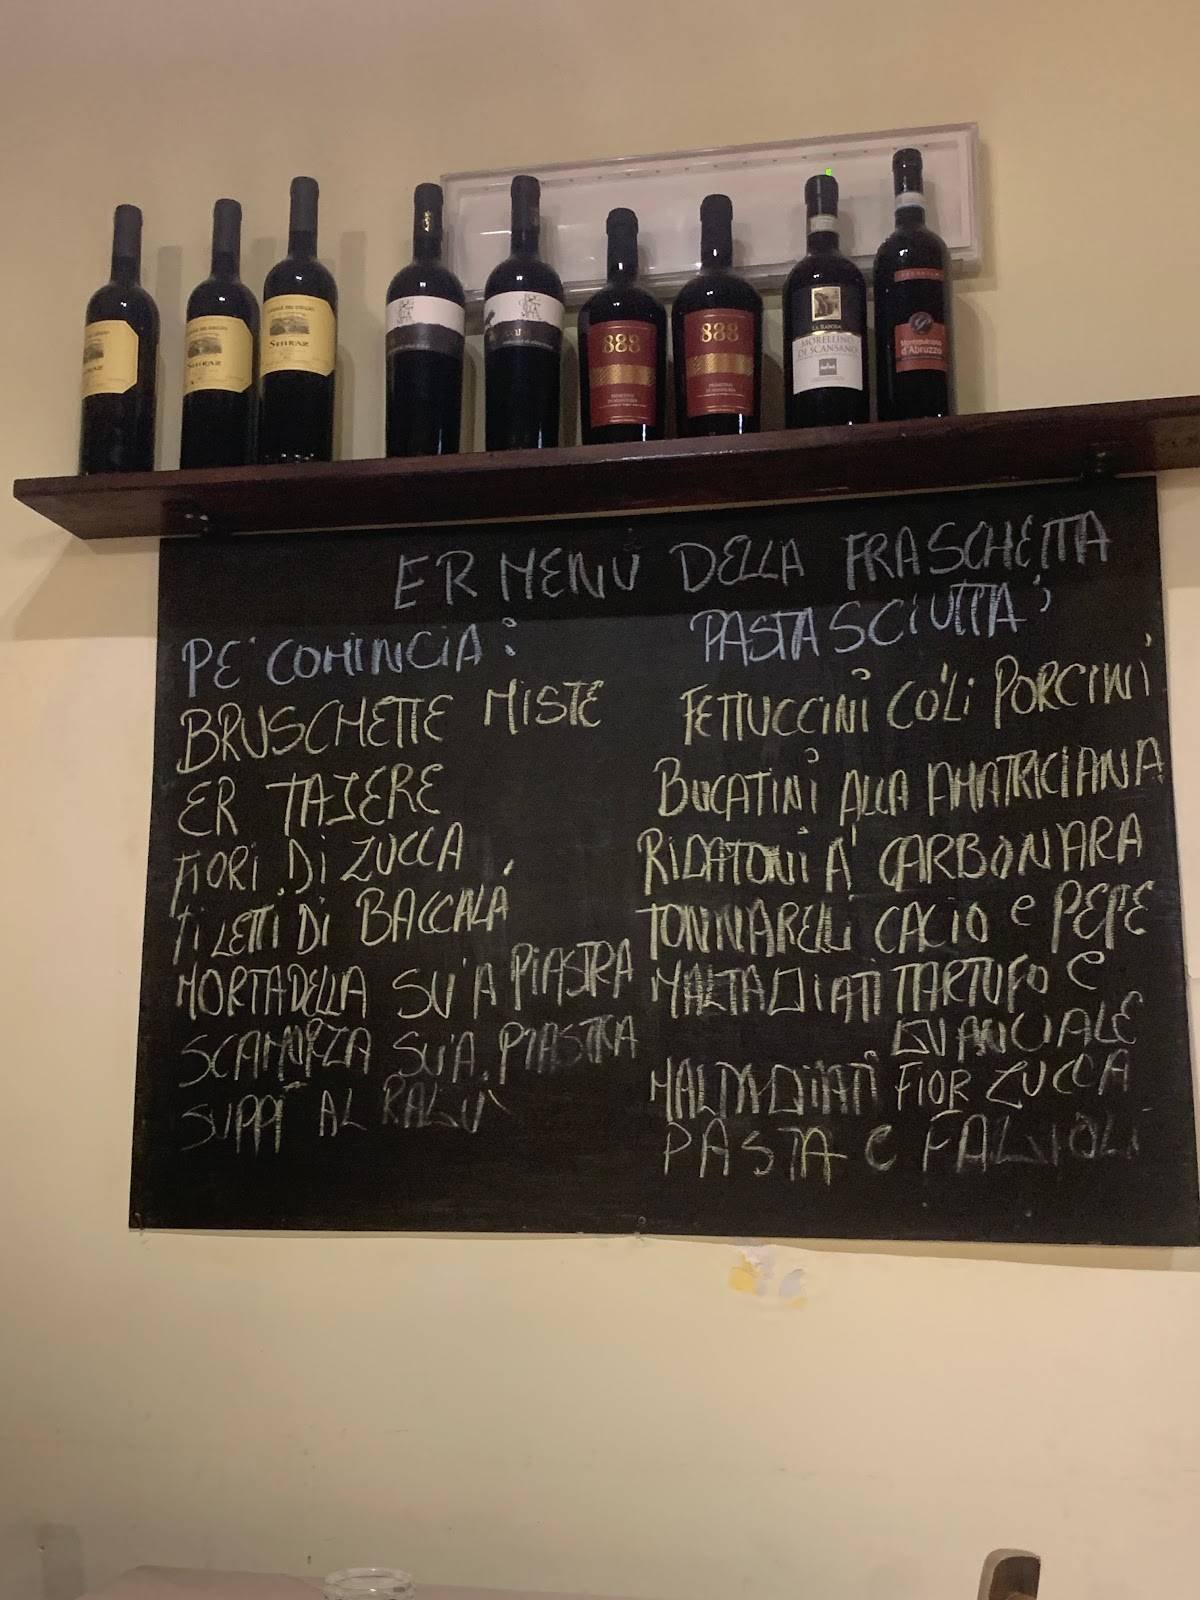 SHIRAZ
SHIRAZ
888
PRIMITIVO
DI MANDURIA
888
PRIMITIVO
DI MANDURIA
LA RASOLA
MORELLINO
DI SCANSANO
Montepulciano
d'Abruzzo
ER MENÙ DELLA FRASCHETTA
PE' COMINCIA:
BRUSCHETTE MISTE
ER TAJERE
FIORI DI ZUCCA
FILETTI DI BACCALÀ
MORTADELLA SU'A PIASTRA
SCAMORZA SU'A PIASTRA
SUPPLÌ AL RAGÙ
PASTASCIUTTA:
FETTUCCINI CO'LI PORCINI
BUCATINI ALLA AMATRICIANA
RIGATONI A' CARBONARA
TONNARELLI CACIO e PEPE
MALTAGLIATI TARTUFO e
GUANCIALE
MALTAGLIATI FIOR ZUCCA
PASTA e FAGIOLI